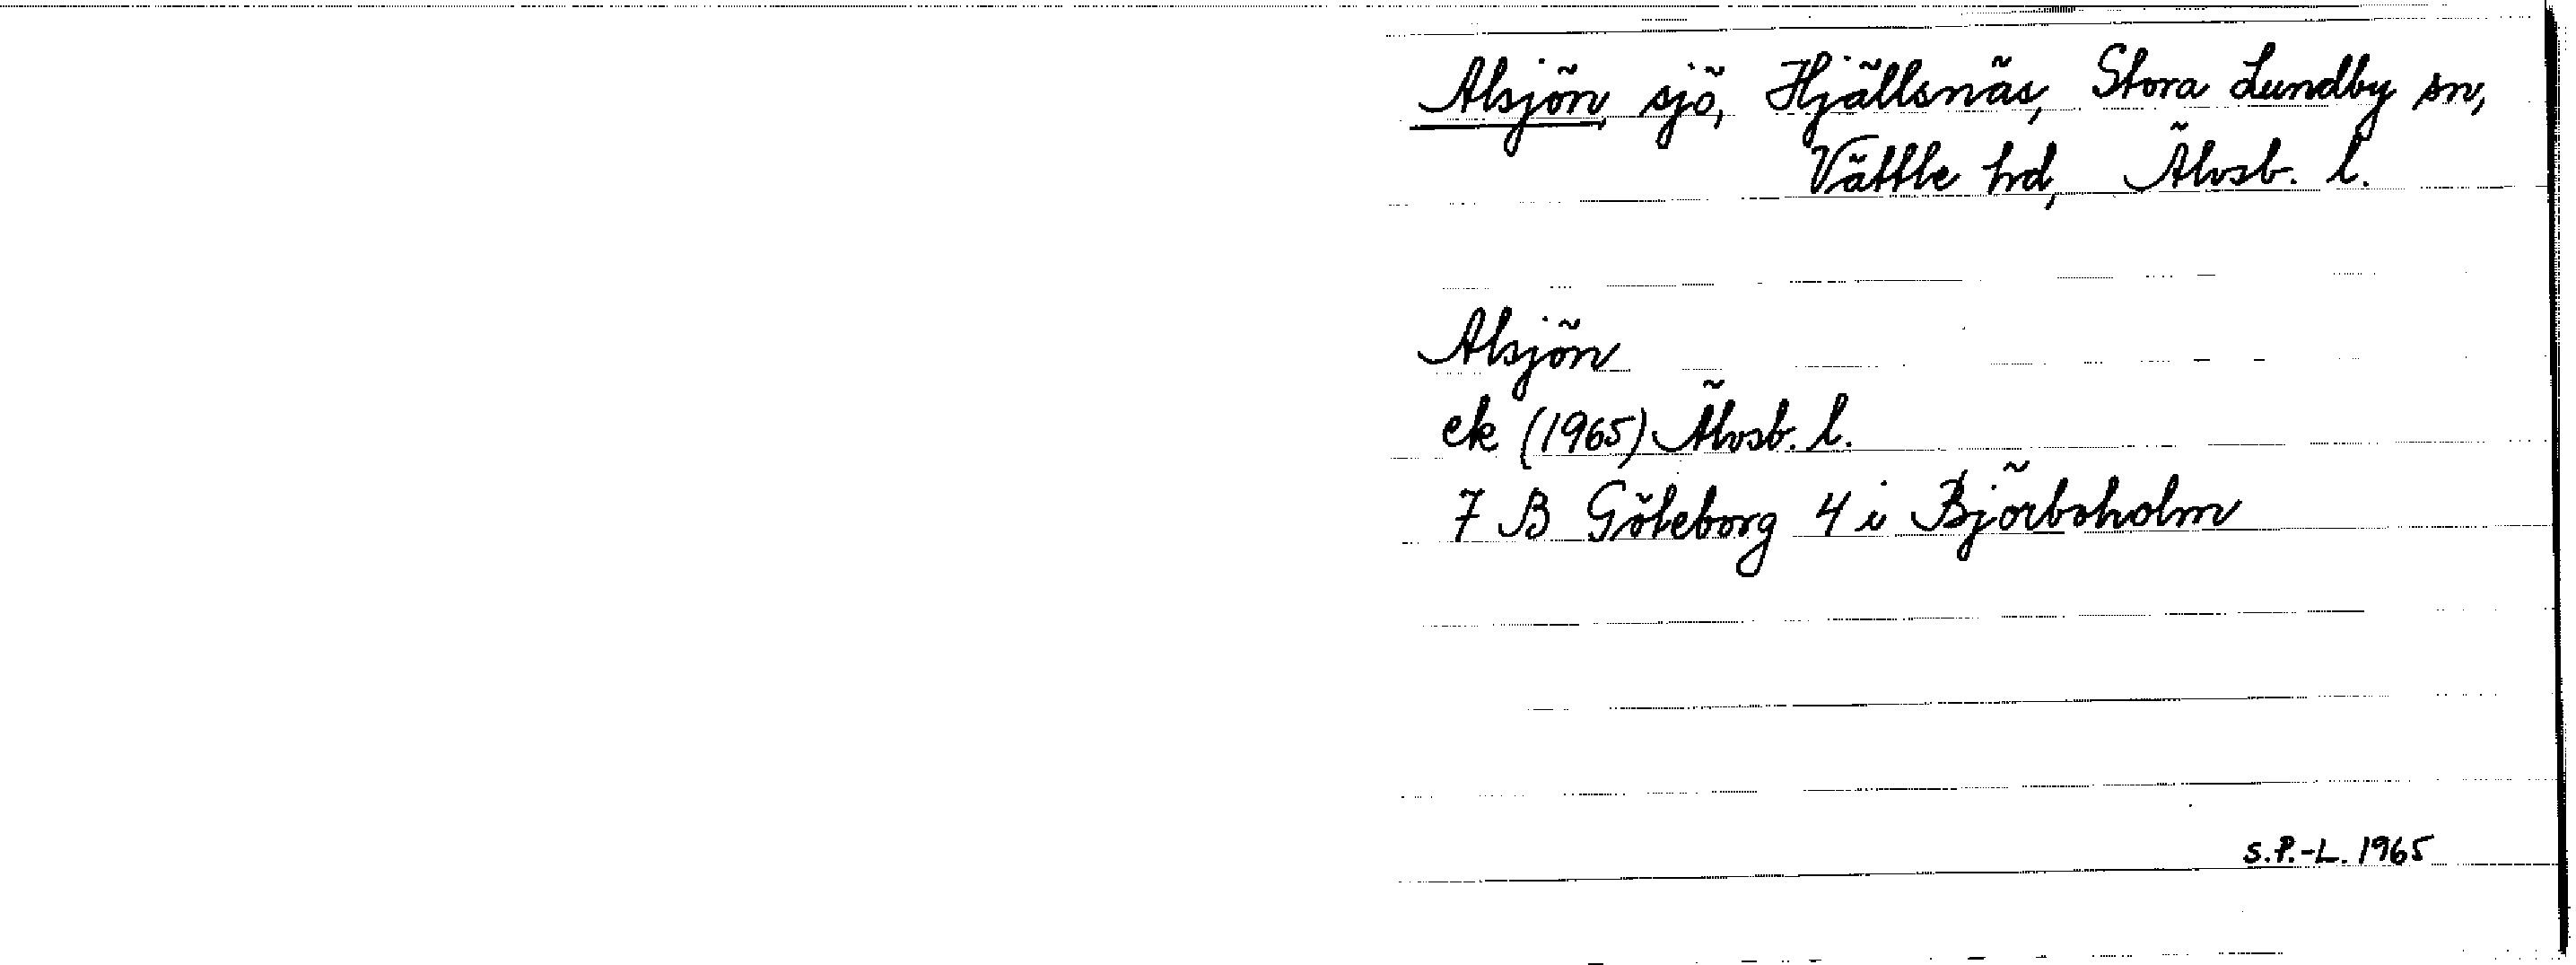 Alsjön sjö, Hjällsnäs, Stora Lundby sn,
Vättle hd, Älvsb. l.
Alsjön
ek (1965) Älvsb. l.
7 B Göteborg 4 i Björboholm
S.P.-L. 1965